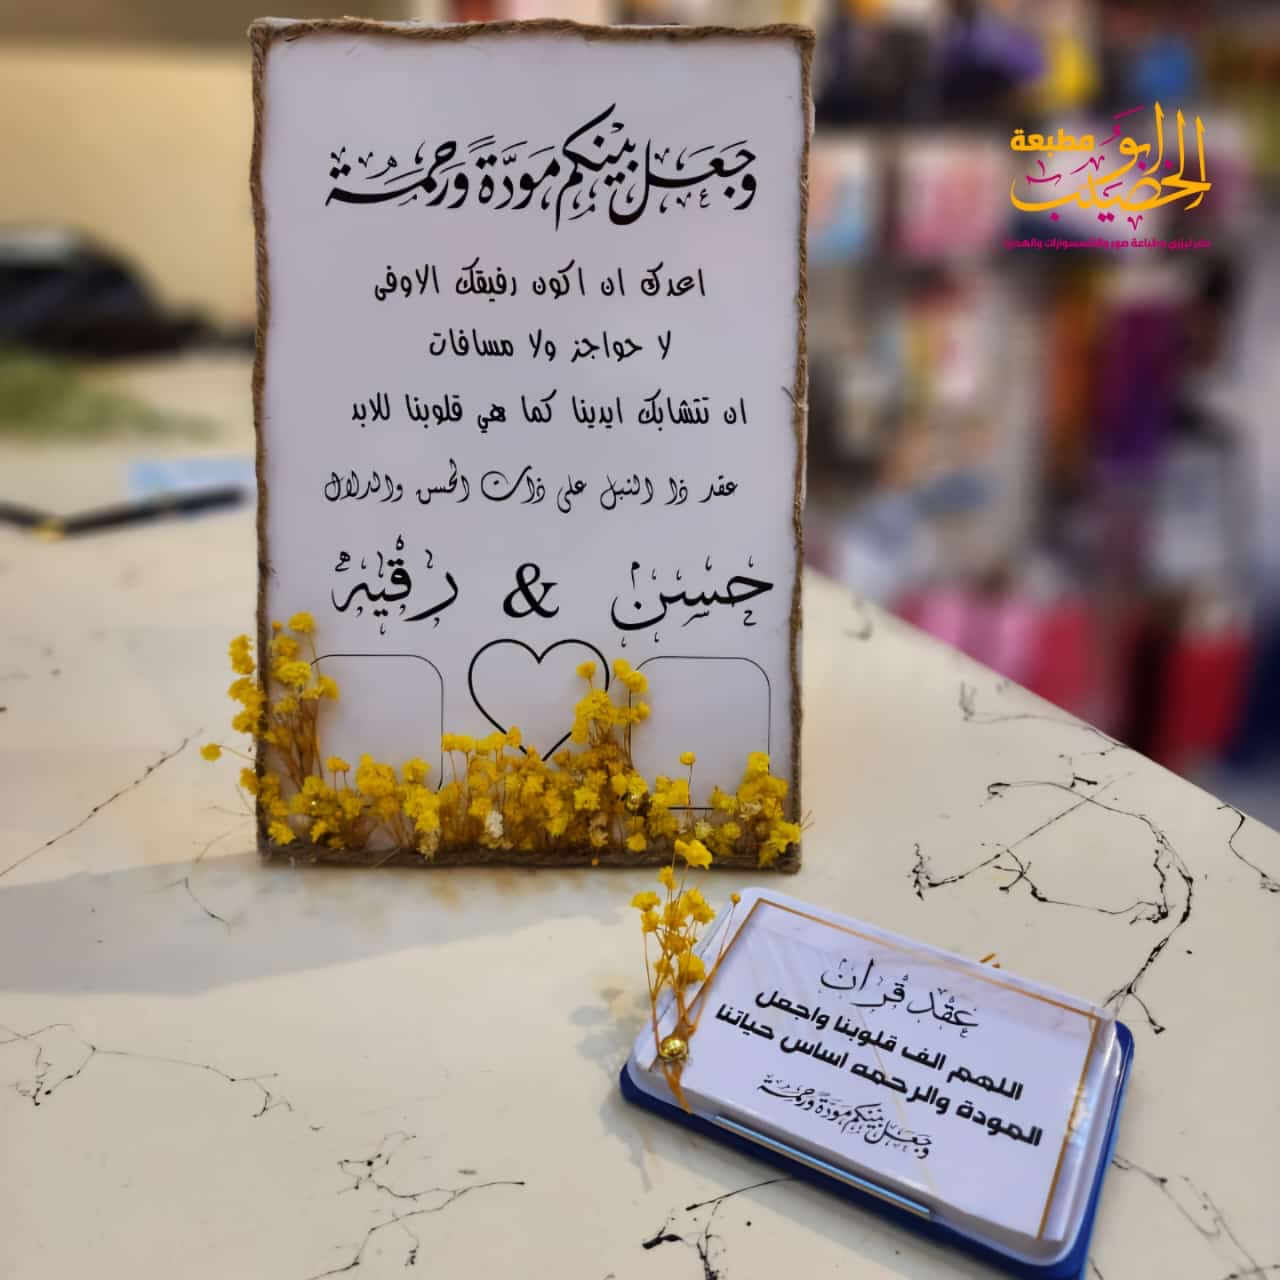 وجعل بينكم مودة ورحمة
اعدك ان اكون رفيقك الاوفى
لا حواجز ولا مسافات
ان تتشابك ايدينا كما هي قلوبنا للابد
عقد ذا النبل على ذات الحسن والدلال
حسن & رقيه
مطبعة
ابو الخصيب
حفر ليزري وطباعة صور واكسسوارات والهدايا
عقد قران
اللهم الف قلوبنا واجعل
المودة والرحمه اساس حياتنا
وجعل بينكم مودة ورحمة